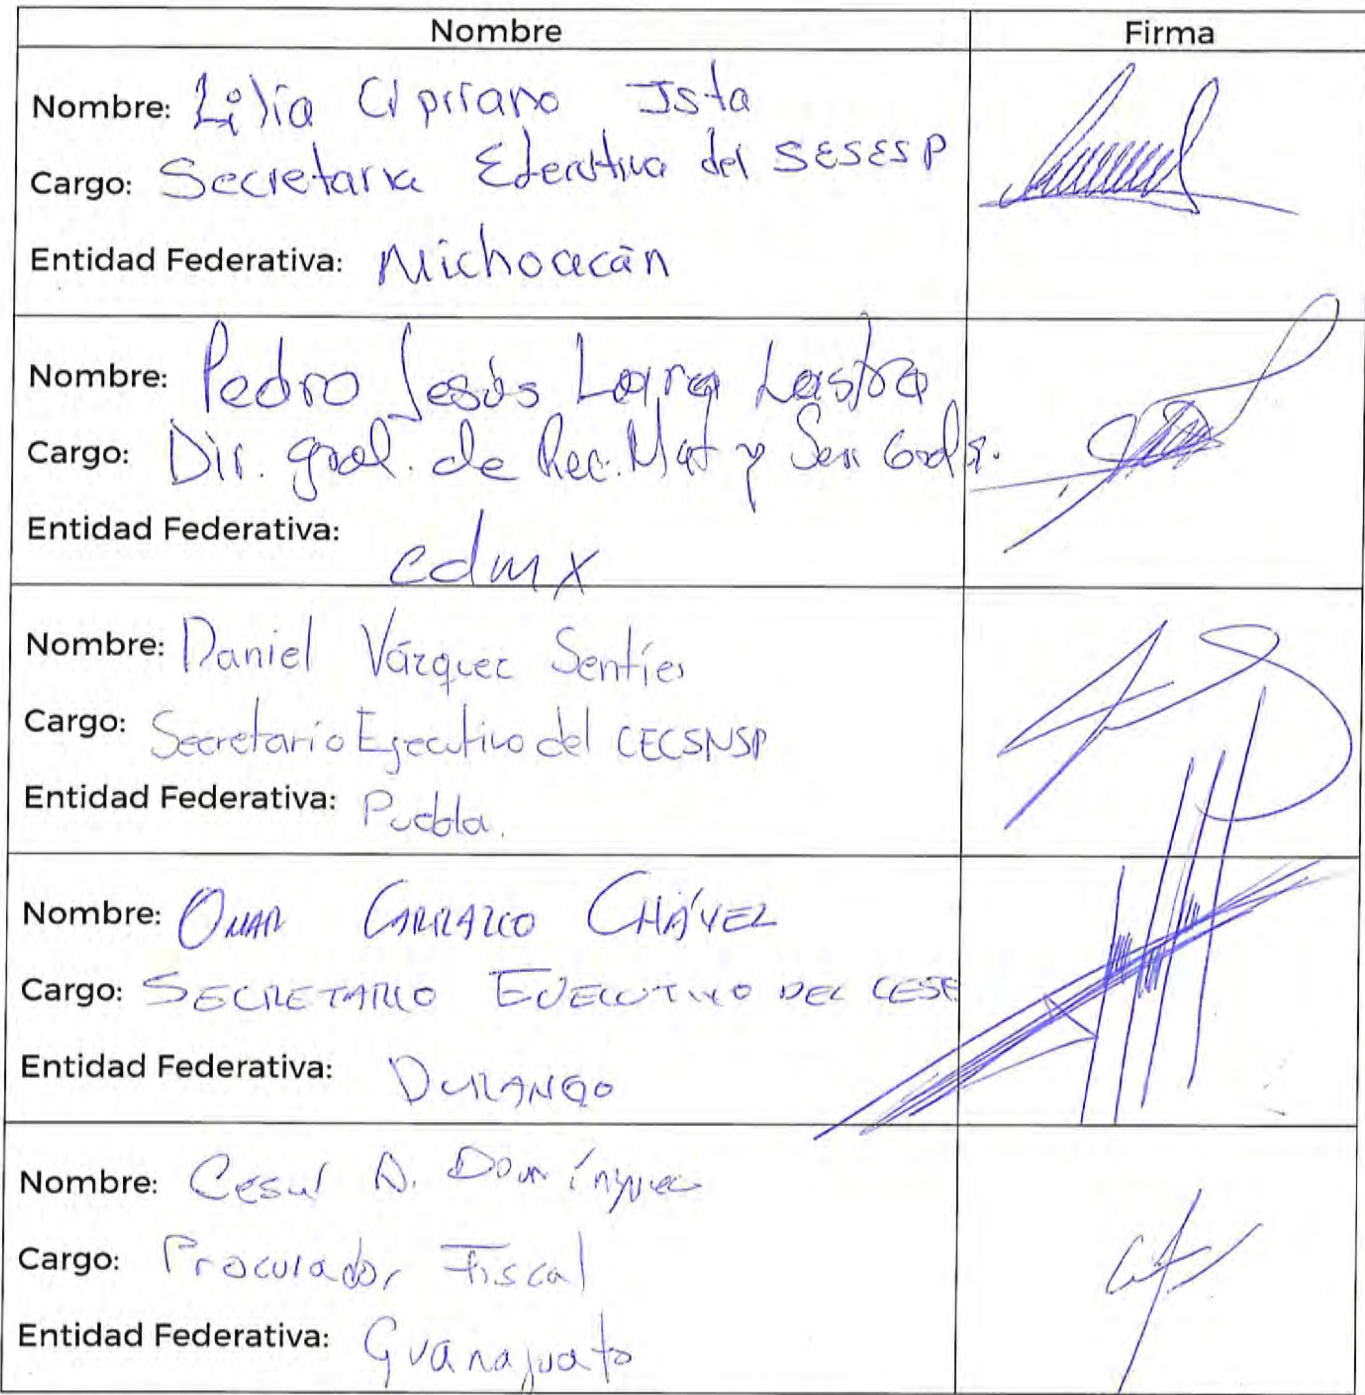 Nombre Firma
Nombre: Lilia Cipriano Ista
Cargo: Secretaria Ejecutiva del SESESP
Entidad Federativa: Michoacán
Nombre: Pedro Jesús Lara Lastra
Cargo: Dir. gral. de Rec. Mat y Serv Grals.
Entidad Federativa: cdmx
Nombre: Daniel Vázquez Sentíes
Cargo: Secretario Ejecutivo del CECSNSP
Entidad Federativa: Puebla.
Nombre: OMAR CARRAZCO CHÁVEZ
Cargo: SECRETARIO EJECUTIVO DEL CESP
Entidad Federativa: DURANGO
Nombre: Cesar A. Domínguez
Cargo: Procurador Fiscal
Entidad Federativa: Guanajuato